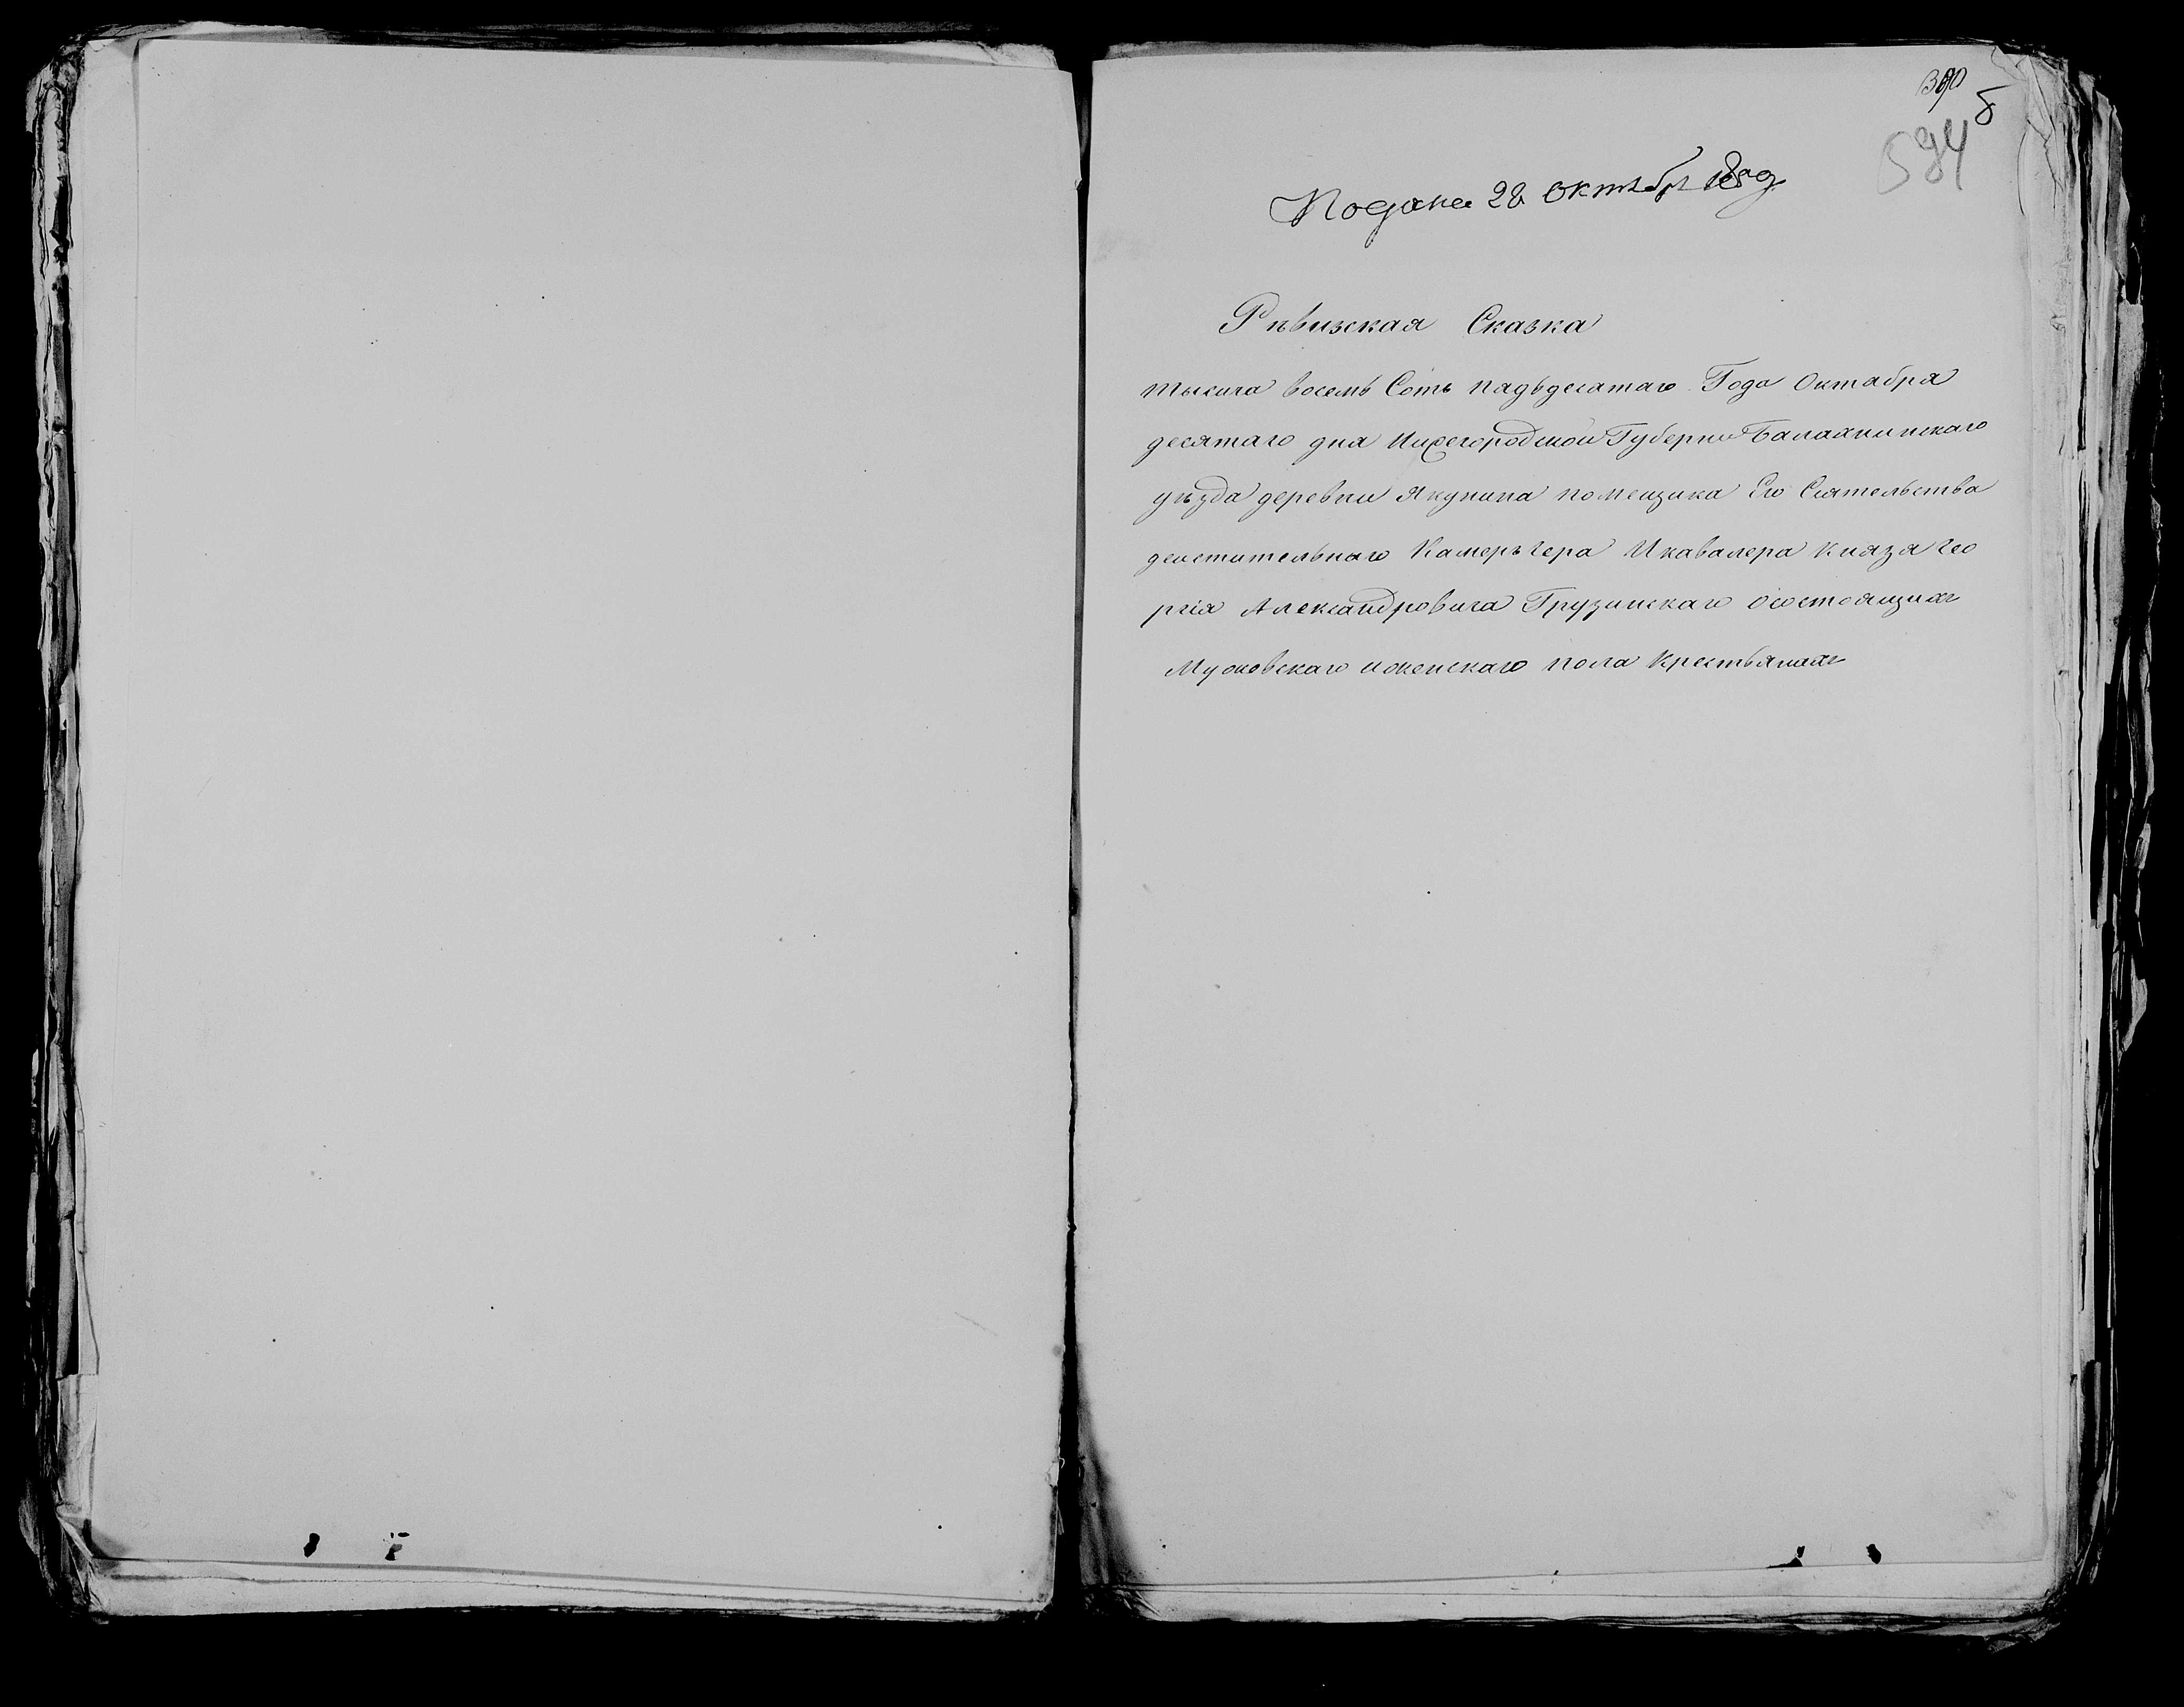 584
Подана 28 Октября
Рѣвизская Сказка
тысича восемь Соть падьдесатаго Года Октабра
десятаго дна Нижегородской Губерни Балахнинскаго
уѣзда деревни Якунина помещика Его Сиятельства
деистительнаго Камеръгера И кавалера Князя Гео
ргія Александровича Грузинскаго осостоящихъ
Мужовскаго иженскаго пола Крестьянахъ